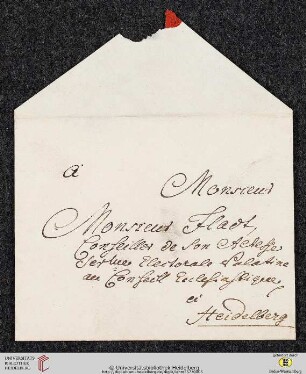 à
Monsieur
Monsieur Fladt,
Conseiller de Son Altesse
Serme Electorale Palatine
au Conseil Ecclesiastique
à
Heidelberg
UNIVERSITÄTS
BIBLIOTHEK
HEIDELBERG
© Universitätsbibliothek Heidelberg